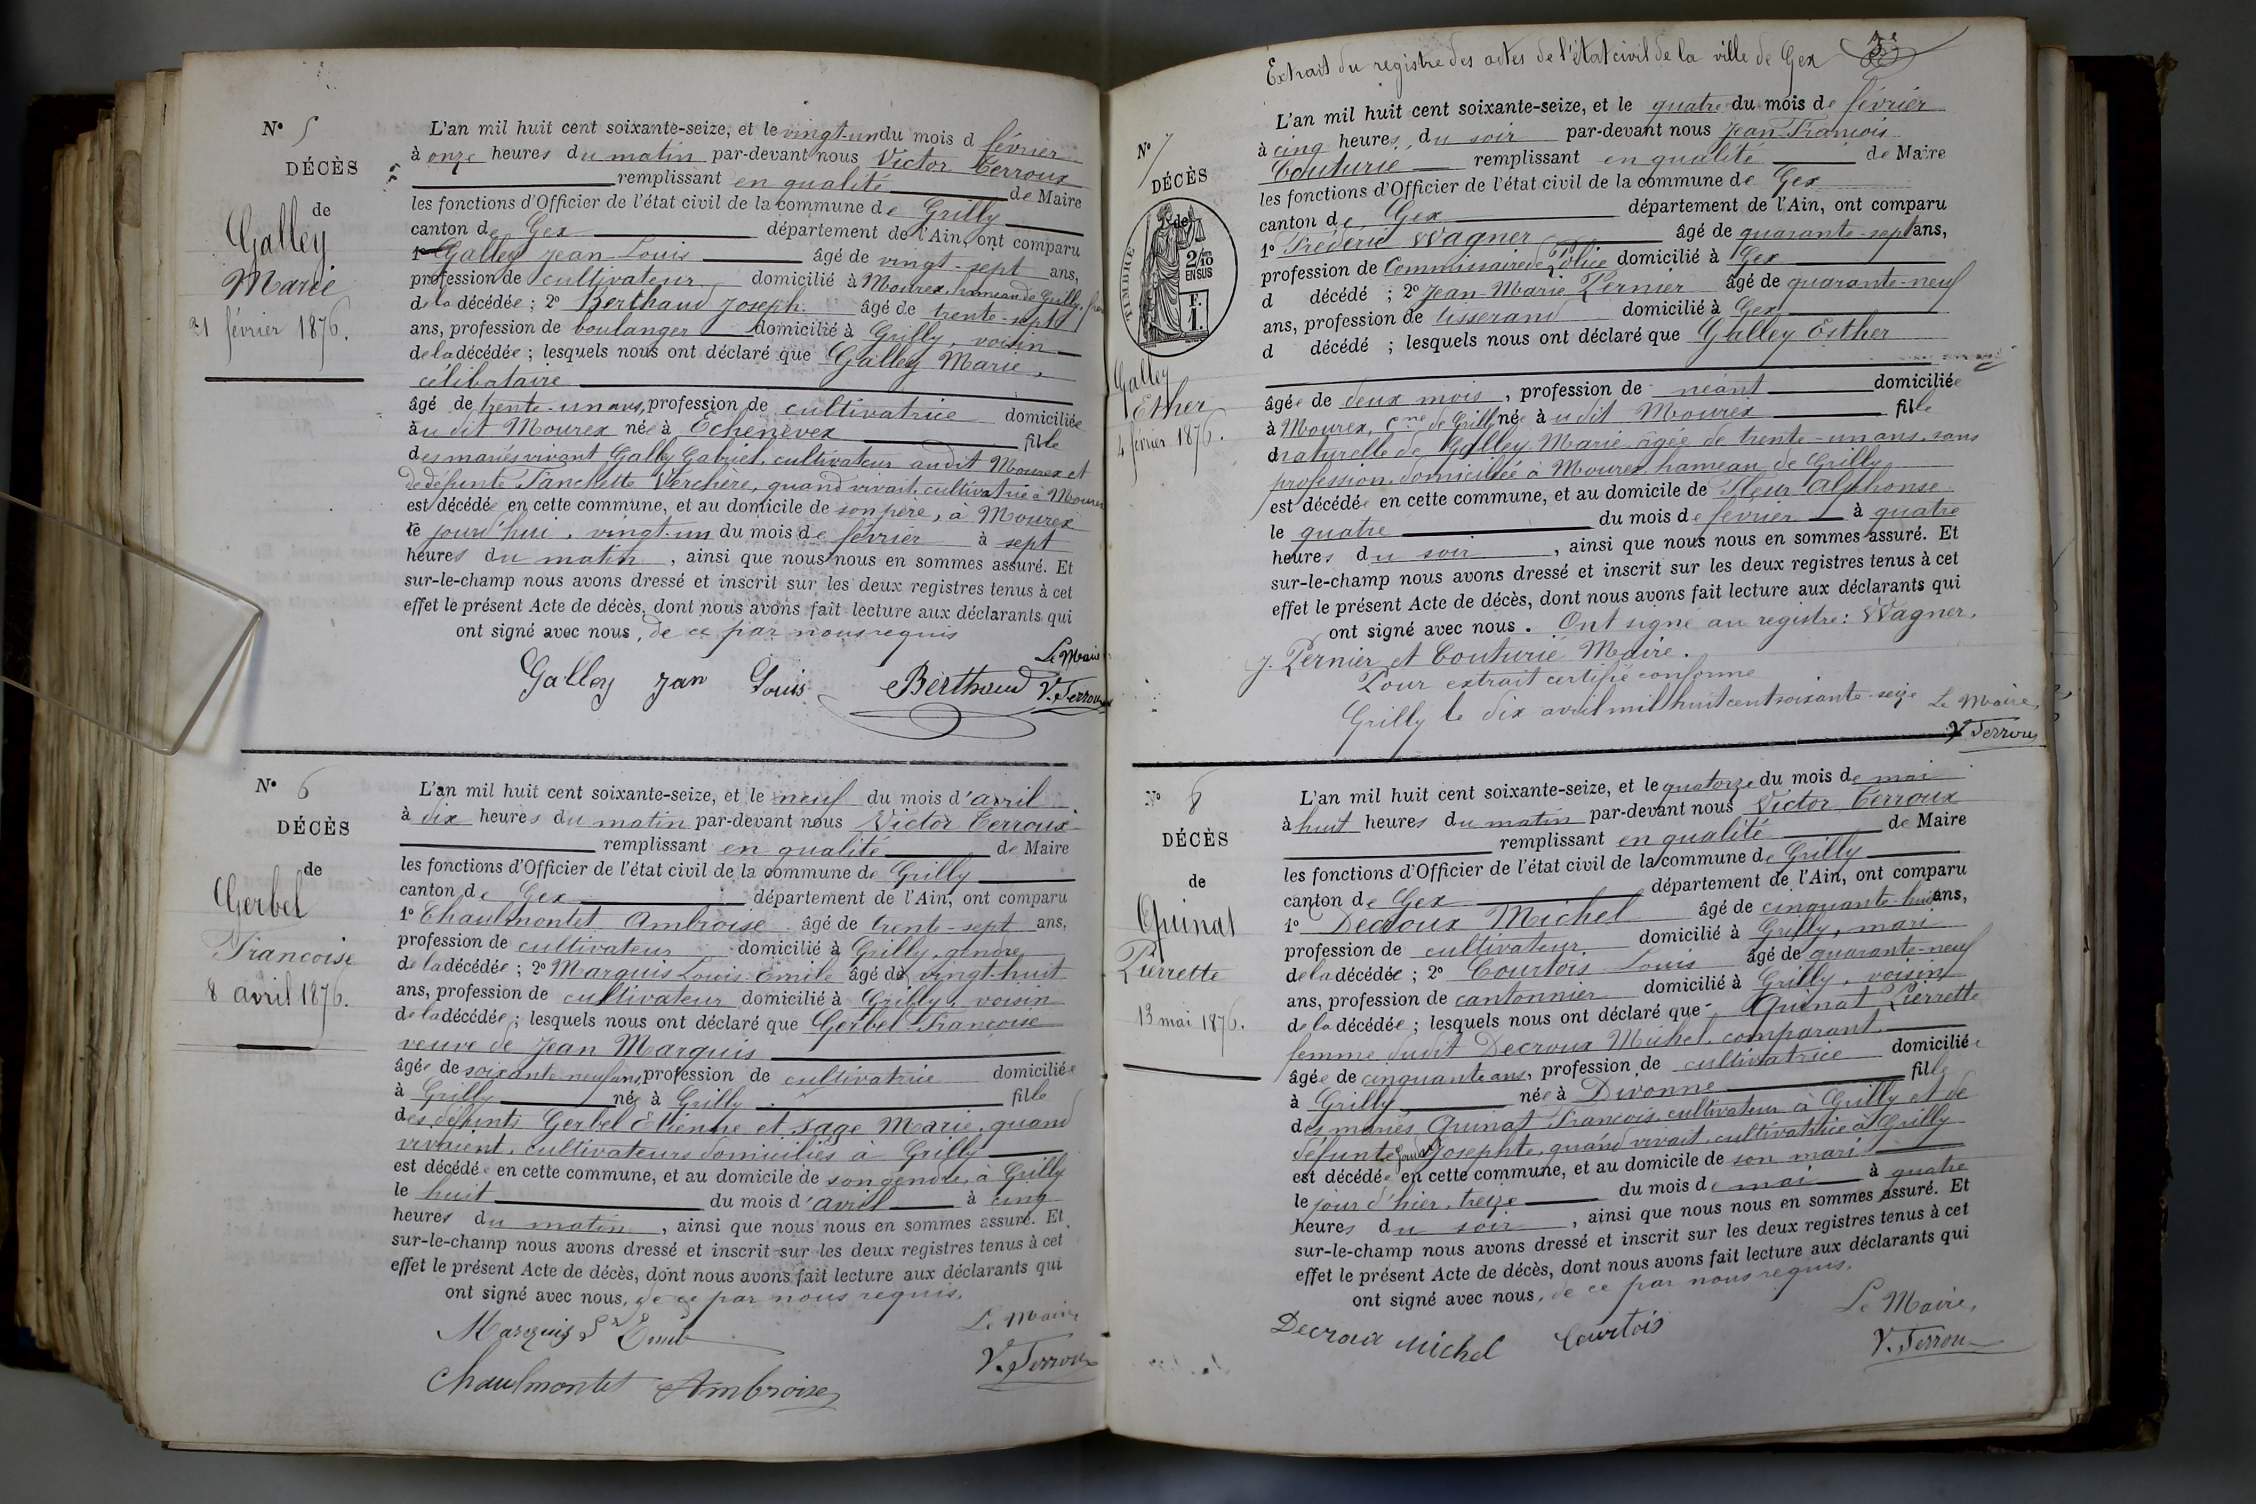 N° 5
DÉCÈS
de
Galley
Marie
21 février 1876.
L'an mil huit cent soixante-seize, et le vingt-un du mois d février
à onze heures du matin par-devant nous Victor Terroux
remplissant en qualité de Maire
les fonctions d'Officier de l'état civil de la commune de Grilly
canton de Gex département de l'Ain, ont comparu
1° Galley Jean-Louis âgé de vingt-sept ans,
profession de cultivateur domicilié à Mourex, hameau de Grilly, frère
de la décédée ; 2° Berthaud Joseph âgé de trente-sept
ans, profession de boulanger domicilié à Grilly, voisin
de la décédée ; lesquels nous ont déclaré que Galley Marie,
célibataire
âgé de trente-un ans, profession de cultivatrice domiciliée
au dit Mourex née à Echenevex fille
des mariés vivant Gally Gabriel, cultivateur au dit Mourex et
de défunte Panchette Verchère, quand vivait cultivatrice à Mourex
est décédée en cette commune, et au domicile de son père, à Mourex
le jourd'hui, vingt-un du mois de février à sept
heures du matin, ainsi que nous nous en sommes assuré. Et
sur-le-champ nous avons dressé et inscrit sur les deux registres tenus à cet
effet le présent Acte de décès, dont nous avons fait lecture aux déclarants qui
ont signé avec nous, de ce par nous requis
Le Maire
Galley Jan Louis Berthaud V. Terroux
N° 6
DÉCÈS
de
Gerbel
Francoise
8 avril 1876.
L'an mil huit cent soixante-seize, et le neuf du mois d'avril
à dix heures du matin par-devant nous Victor Terroux
remplissant en qualité de Maire
les fonctions d'Officier de l'état civil de la commune de Grilly
canton de Gex département de l'Ain, ont comparu
1° Chaulmontet Ambroise âgé de trente-sept ans,
profession de cultivateur domicilié à Grilly, gendre
de la décédée ; 2° Marquis Louis Emile âgé de vingt-huit
ans, profession de cultivateur domicilié à Grilly, voisin
de la décédée ; lesquels nous ont déclaré que Gerbel Francoise
veuve de Jean Marquis
âgée de soixante neuf ans, profession de cultivatrice domiciliée
à Grilly née à Grilly fille
des défunts Gerbel Etienne et Sage Marie, quand
vivaient, cultivateurs domiciliés à Grilly
est décédée en cette commune, et au domicile de son gendre, à Grilly
le huit du mois d'avril à cinq
heures du matin, ainsi que nous nous en sommes assuré. Et
sur-le-champ nous avons dressé et inscrit sur les deux registres tenus à cet
effet le présent Acte de décès, dont nous avons fait lecture aux déclarants qui
ont signé avec nous, de ce par nous requis.
Marquis Ls Emile Le Maire
V. Terroux
Chaulmontet Ambroise
Extrait du registre des actes de l'état civil de la ville de Gex
N° 7
DÉCÈS
de
TIMBRE
2/10
EN SUS
F.
1.
Galley
Esther
4 février 1876.
L'an mil huit cent soixante-seize, et le quatre du mois de février
à cinq heures, du soir par-devant nous Jean-François
Couturié remplissant en qualité de Maire
les fonctions d'Officier de l'état civil de la commune de Gex
canton de Gex département de l'Ain, ont comparu
1° Frédéric Wagner âgé de quarante-sept ans,
profession de Commissaire de Police domicilié à Gex
d décédé ; 2° Jean-Marie Pernier âgé de quarante-neuf
ans, profession de tisserand domicilié à Gex
d décédé ; lesquels nous ont déclaré que Galley Esther
âgée de deux mois, profession de néant domiciliée
à Mourex, Cne de Grilly née audit Mourex fille
naturelle de Galley Marie âgée de trente-un ans, sans
profession domiciliée à Mourex, hameau de Grilly
est décédée en cette commune, et au domicile de Fleur Alphonse
le quatre du mois de février à quatre
heures du soir, ainsi que nous nous en sommes assuré. Et
sur-le-champ nous avons dressé et inscrit sur les deux registres tenus à cet
effet le présent Acte de décès, dont nous avons fait lecture aux déclarants qui
ont signé avec nous. Ont signé au registre: Wagner,
J. Pernier et Couturié Maire.
Pour extrait certifié conforme
Grilly le dix avril mil huit cent soixante-seize Le Maire,
V. Terroux
N° 8
DÉCÈS
de
Quinat
Pierrette
13 mai 1876.
L'an mil huit cent soixante-seize, et le quatorze du mois de mai
à huit heures du matin par-devant nous Victor Terroux
remplissant en qualité de Maire
les fonctions d'Officier de l'état civil de la commune de Grilly
canton de Gex département de l'Ain, ont comparu
1° Decroux Michel âgé de cinquante-huit ans,
profession de cultivateur domicilié à Grilly, mari
de la décédée ; 2° Courtois Louis âgé de quarante-neuf
ans, profession de cantonnier domicilié à Grilly, voisin
de la décédée ; lesquels nous ont déclaré que Quinat Pierrette
femme dudit Decroux Michel, comparant
âgée de cinquante ans, profession de cultivatrice domiciliée
à Grilly née à Divonne fille
des mariés Quinat François, cultivateur à Grilly et de
défunte Josephte, quand vivait, cultivatrice à Grilly
est décédée en cette commune, et au domicile de son mari
le jour d'hier, treize du mois de mai à quatre
heures du soir, ainsi que nous nous en sommes assuré. Et
sur-le-champ nous avons dressé et inscrit sur les deux registres tenus à cet
effet le présent Acte de décès, dont nous avons fait lecture aux déclarants qui
ont signé avec nous, de ce par nous requis.
Le Maire,
Decroux Michel Courtois
V. Terroux